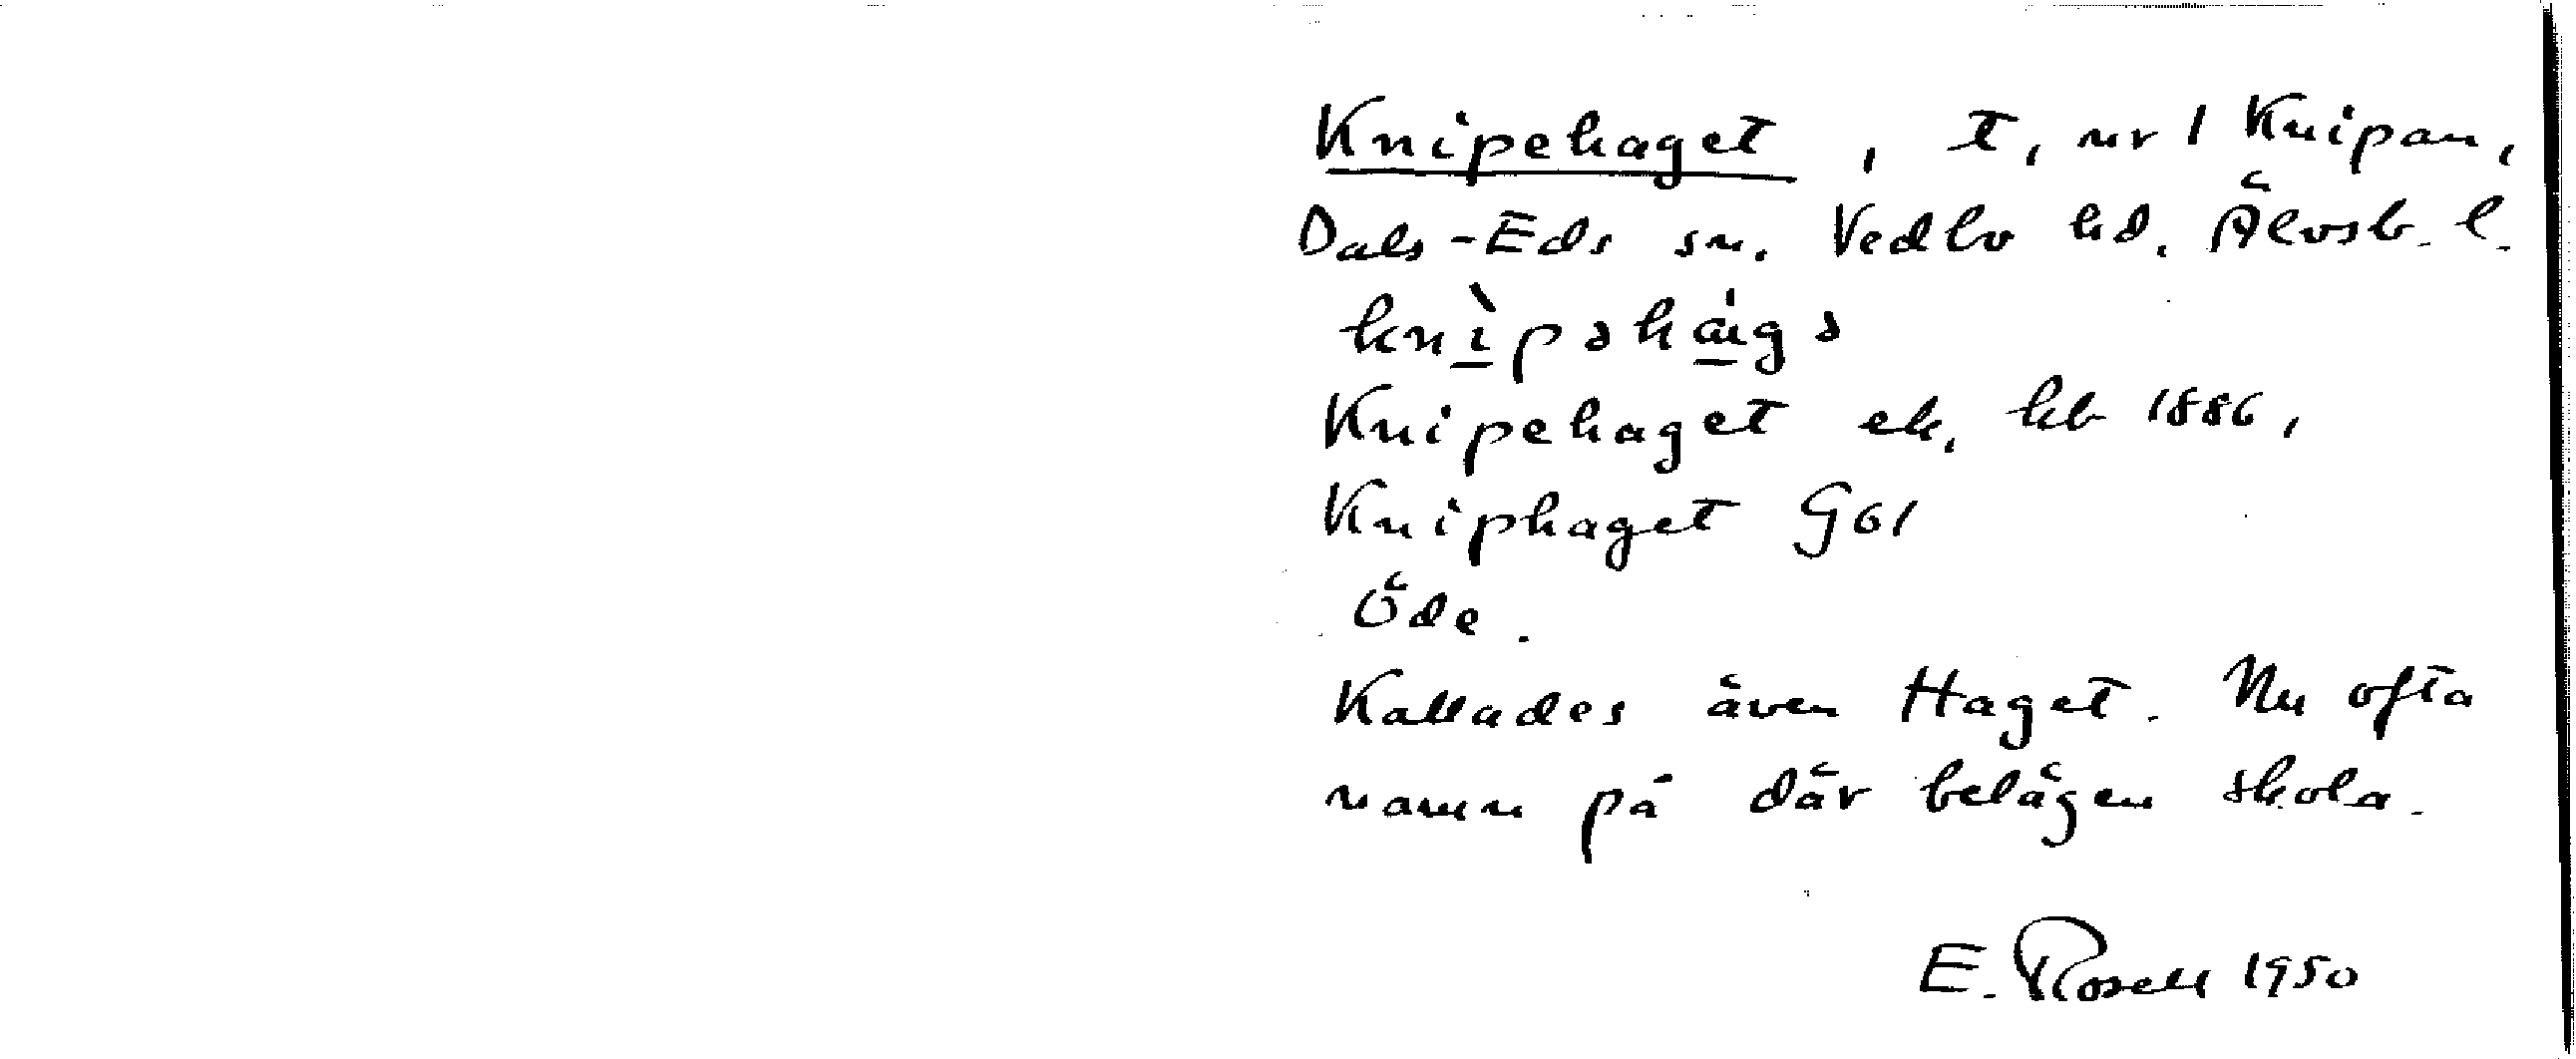 Knipehaget, t, nr 1 Knipan,
Dals-Eds sn. Vedbo hd. Älvsb. l.
knìpəhágə
Knipehaget ek. kb 1886,
Kniphaget G61
Öde.
Kallades även Haget. Nu ofta
namn på där belägen skola.
E. Rosell 1950